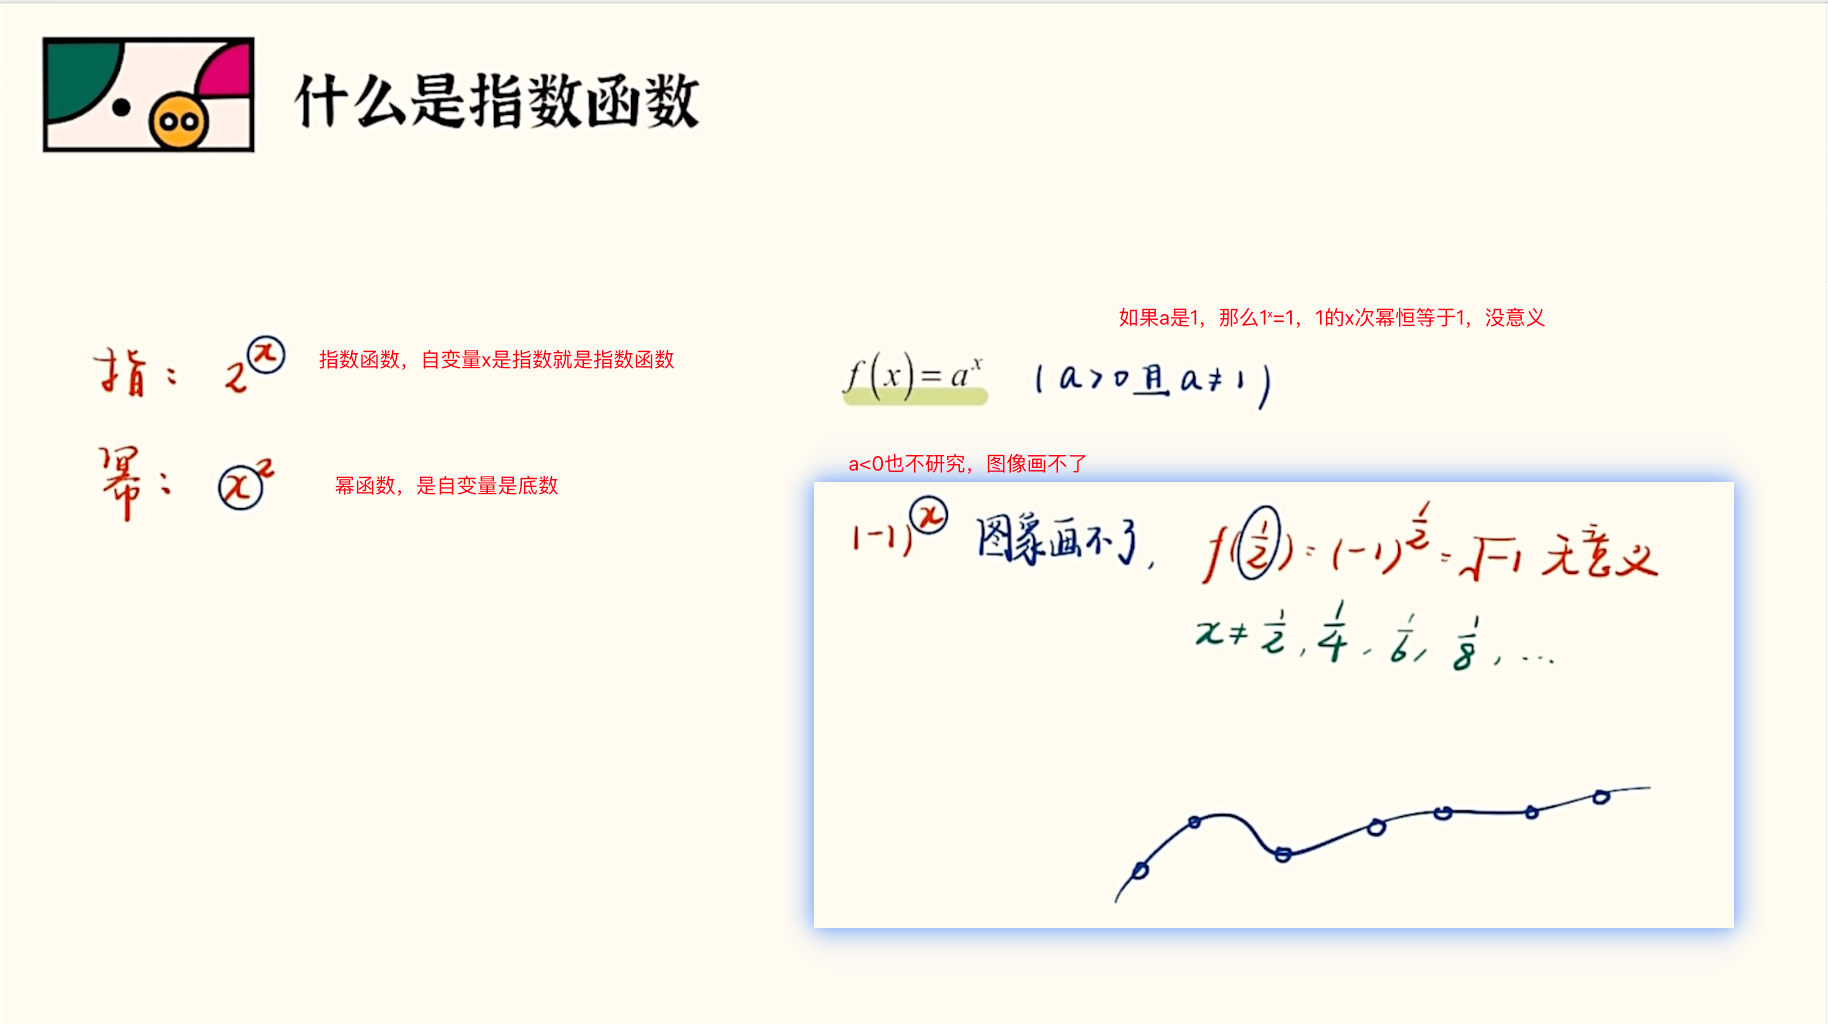 什么是指数函数
指：2^x 指数函数，自变量x是指数就是指数函数
幂：x² 幂函数，是自变量是底数
如果a是1，那么1ˣ=1，1的x次幂恒等于1，没意义
f(x)=aˣ (a>0且a≠1)
a<0也不研究，图像画不了
(-1)^x 图象画不了， f(1/2)=(-1)^(1/2)=√-1 无意义
x≠1/2, 1/4, 1/6, 1/8, ...